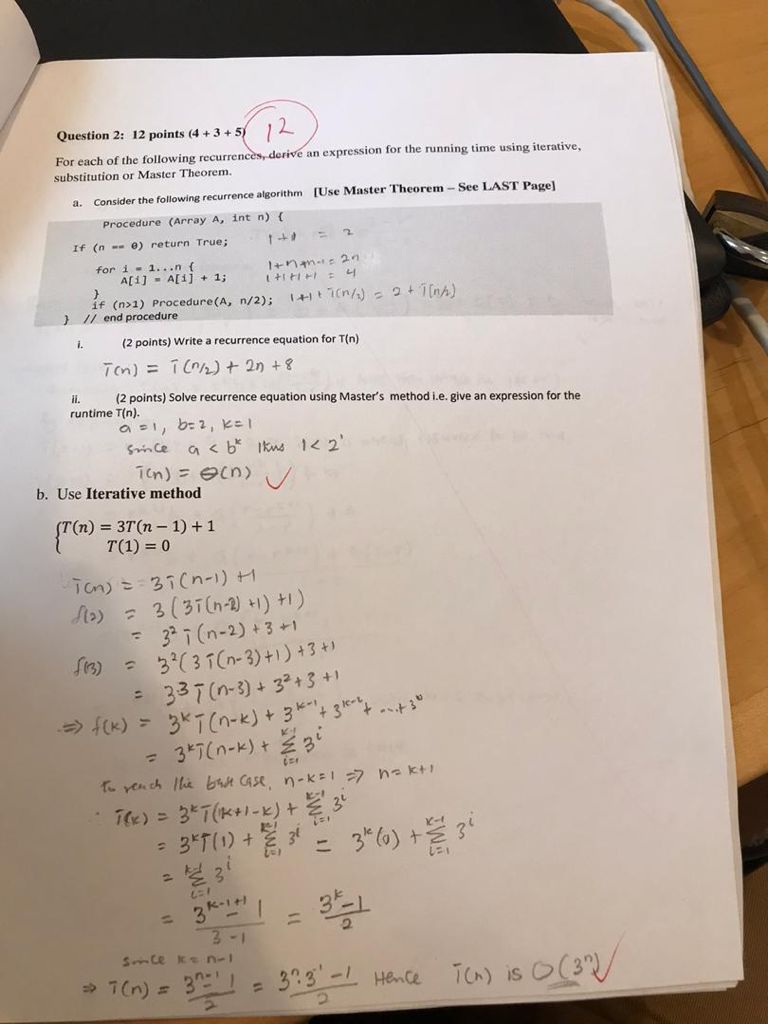 Question 2: 12 points (4 + 3 + 5) 12
For each of the following recurrences, derive an expression for the running time using iterative,
substitution or Master Theorem.
a. Consider the following recurrence algorithm [Use Master Theorem – See LAST Page]
Procedure (Array A, int n) {
If (n == 0) return True; 1+1 = 2
for i = 1...n { 1+n+n-1 = 2n
A[i] = A[i] + 1; 1+1+1+1 = 4
}
if (n>1) Procedure(A, n/2); 1+1+T(n/2) = 2 + T(n/2)
} // end procedure
i. (2 points) Write a recurrence equation for T(n)
T(n) = T(n/2) + 2n + 8
ii. (2 points) Solve recurrence equation using Master's method i.e. give an expression for the
runtime T(n).
a = 1, b=2, k=1
since a < b^k thus 1 < 2^1
T(n) = Θ(n) ✓
b. Use Iterative method
{T(n) = 3T(n − 1) + 1
T(1) = 0
T(n) = 3T(n-1) +1
f(2) = 3(3T(n-2) +1) +1)
= 3² T(n-2) + 3 +1
f(3) = 3²(3T(n-3)+1) +3+1
= 33 T(n-3) + 3²+3 +1
⇒ f(k) = 3^k T(n-k) + 3^(k-1) + 3^(k-2) + ...+3^0
= 3^k T(n-k) + Σ_{i=1}^{k-1} 3^i
to reach the base case, n-k=1 ⇒ n= k+1
∴ T(k) = 3^k T(k+1-k) + Σ_{i=1}^{k-1} 3^i
= 3^k T(1) + Σ_{i=1}^{k-1} 3^i = 3^k (0) + Σ_{i=1}^{k-1} 3^i
= Σ_{i=1}^{k-1} 3^i
= (3^(k-1+1) - 1)/(3-1) = (3^k-1)/2
since k = n-1
⇒ T(n) = (3^(n-1) - 1)/2 = (3^n·3^1 -1)/2 Hence T(n) is O(3^n) ✓